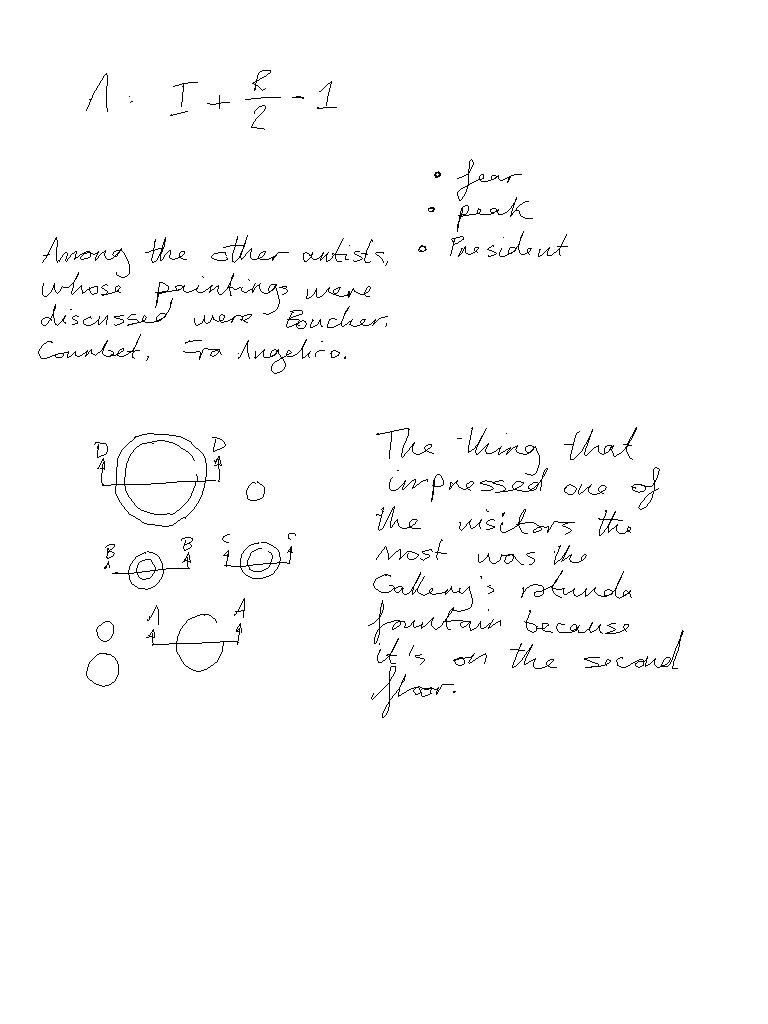 A: I + R/2 - 1
• fear
• peak
• President
Among the other artists,
whose paintings were
discussed were Boucher,
Courbet, Fra Angelico.
D D
B B C C
A A
The thing that
impressed one of
the visitors the
most was the
Gallery's rotunda
fountain because
it's on the second
floor.